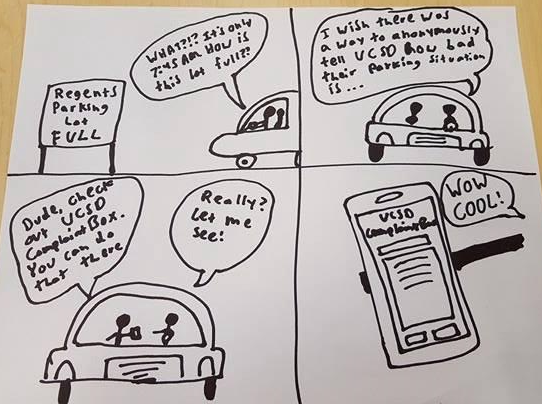 Regents
Parking
Lot
FULL
WHAT?!? It's only
7:45 AM. How is
this lot full??
I wish there was
a way to anonymously
tell UCSD how bad
their parking situation
is...
Dude, check
out UCSD
ComplaintBox.
You can do
that there
Really?
Let me
see!
UCSD
ComplaintBox
WOW
COOL!